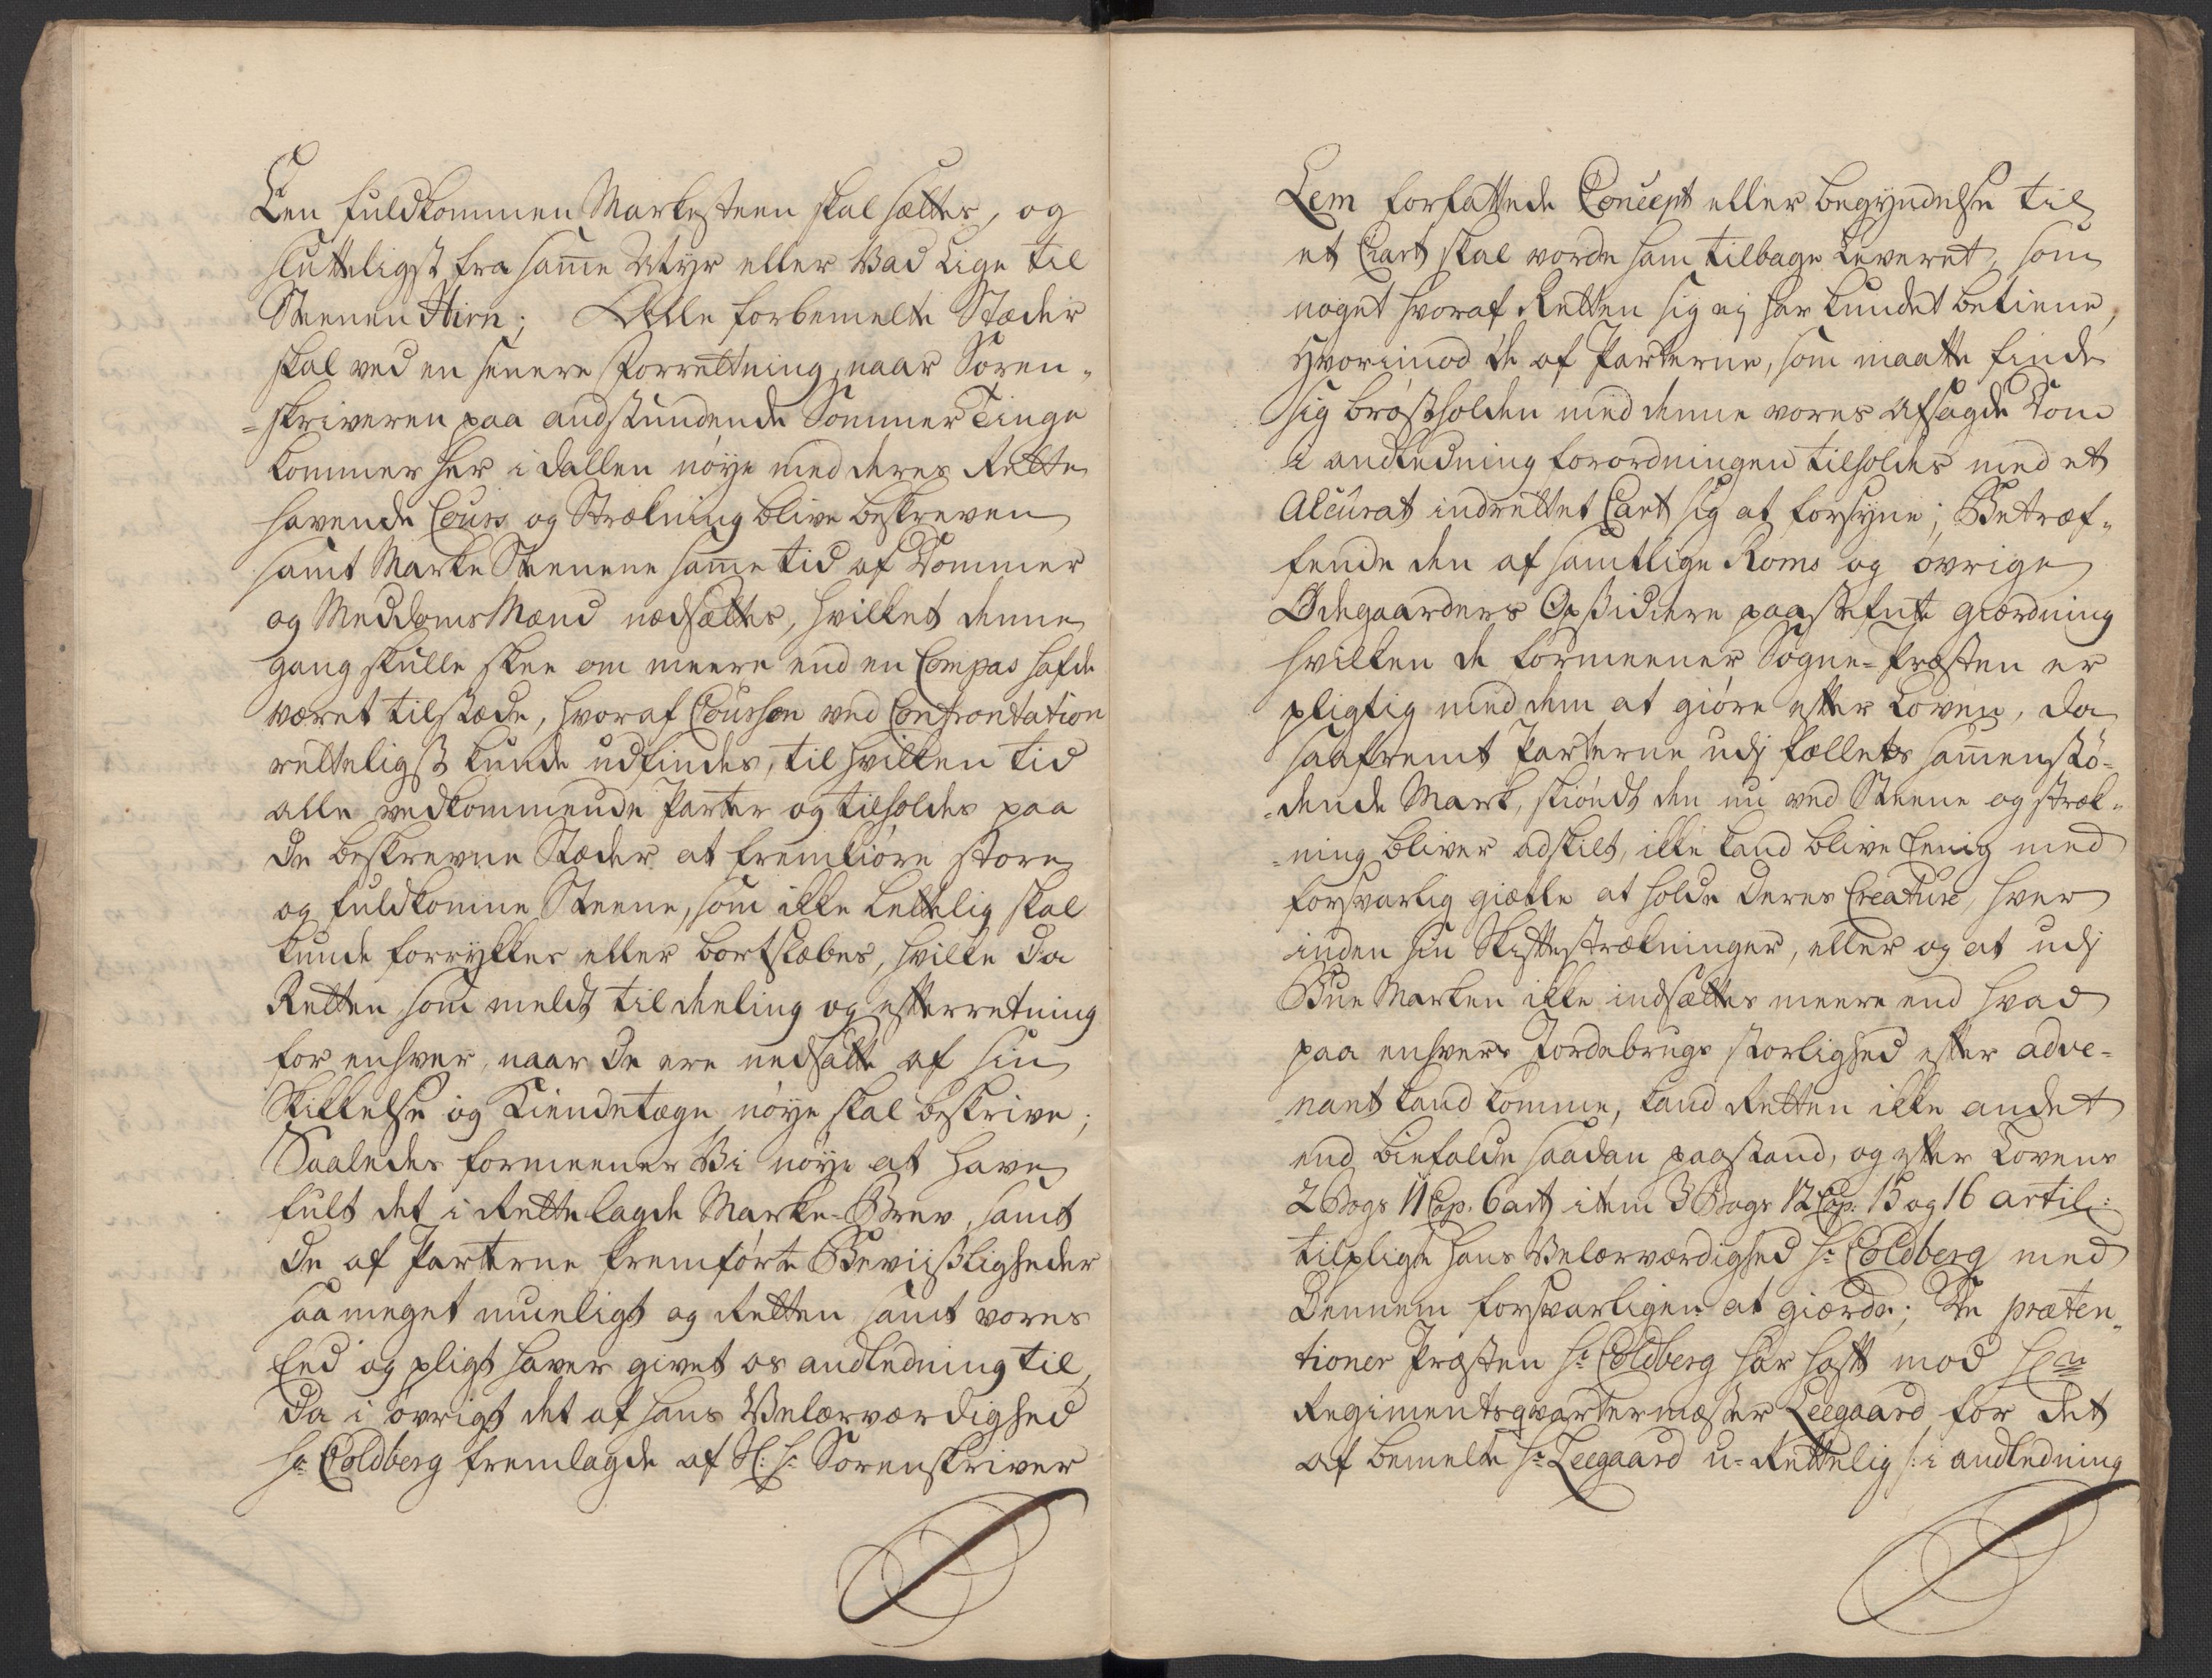 Een fuldkommen Markesteen skal sættes, og
slutteligst fra samme Myr eller Vad Lige til
Steenen Hirn; Alle forbemelte Stæder
skal ved en senere Forrettning, naar Soren-
-skriveren paa anstundende Sommer Tinge
kommer her i Dallen nöye med deres Rette
havende Cours og Strækning blive beskreven
samt Marke Steenene samme tid af Dommer
og MeddomsMænd nedsættes, hvilket denne
gang skulle skee om meere end en Compas hafde
været tilstæde, hvoraf Coursen ved Confrontation
retteligst kunde udfindes, til hvilken tid
alle vedkommende Parter og tilholdes paa
de beskrevne Stæder at fremkiöre store
og fuldkomne Steene, som ikke lettelig skal
kunde forrykkes eller bortslæbes, hvilke da
Retten som meldt til deeling og efterretning
for enhver, naar de ere nedsatte af sin
Skikkelse og Kiendetægn nöye skal beskrive;
Saaledes formeener Vi nöye at have
fult det i Rettelagde Marke-Brev, samt
de af Parterne fremförte Beviisligheder
saa meget mueligt og Retten samt vores
Eed og pligt haver givet os andledning til,
da i övrigt det af hans Velærværdighed
Hr. Coldberg fremlagde af Sl: Hr: Sorenskriver
Lem forfattede Concept eller begyndelse til
et Cart skal vorde ham tilbage Leveret, som
noget hvoraf Retten sig ej har kundet betiene,
Hvorimod de af Parterne, som maatte finde
sig bröstholden med denne vores afsagde Dom
i andledning forordningen tilholdes med et
Accurat indrettet Cart sig at forsyne; Betræf-
fende den af samtlige Roms og övrige
Ödegaarders Opsiddere paastefnte giærdning
hvilken de formeener Sogne-Præsten er
pligtig med dem at giöre efter Loven, da
saafremt Parterne udj fællets sammenstö-
-dende Mark, skiöndt den nu ved Steene og stræk-
-ning bliver adskilt, ikke kand blive Eenig med
forsvarlig giætte at holde deres Creature, hver
inden sin Skiftestrækninger, eller og at udj
Bue Marken ikke indsættes meere end hvad
paa enhvers Jordebrugs storlighed efter adve-
-nant kand komme, kand Retten ikke andet
end biefalde saadan paastand, og efter Lovens
2 Bogs 11 Cap. 6 art item 3 Bogs 12 Cap: 15 og 16 artik:
tilpligte hans Velærværdighed Hr. Coldberg med
Dennem forsvarligen at giærde; De præten-
tioner Præsten Hr. Coldberg har haft mod Hr.
Regimentsqvartermæster Leegaard for det
af bemelte Hr. Leegaard u-Rettelig /: i andledning